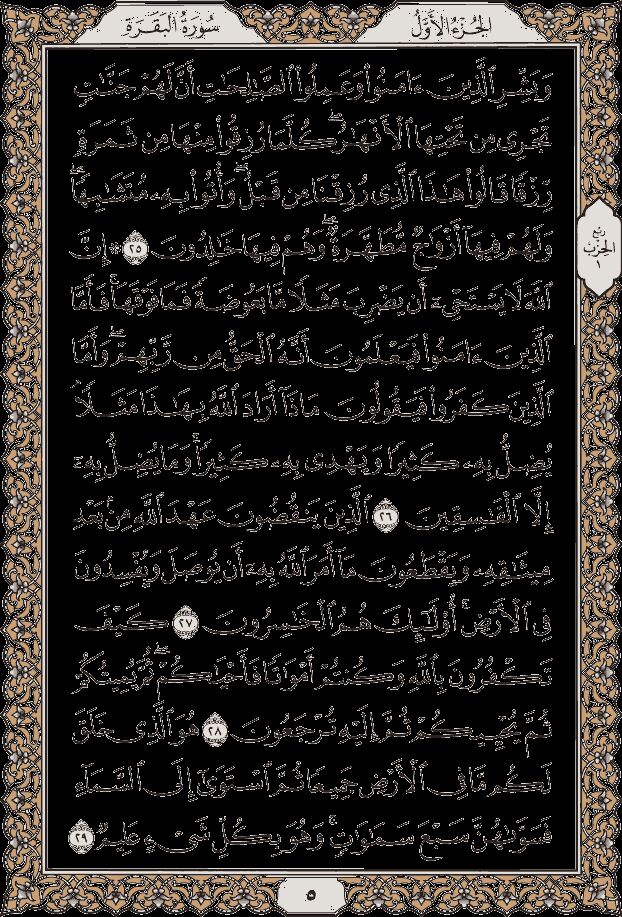 الجُزءُ الأَوَّلُ
سُورَةُ البَقَرَةِ
وَبَشِّرِ ٱلَّذِينَ ءَامَنُوا۟ وَعَمِلُوا۟ ٱلصَّـٰلِحَـٰتِ أَنَّ لَهُمْ جَنَّـٰتٍ
تَجْرِى مِن تَحْتِهَا ٱلْأَنْهَـٰرُ ۖ كُلَّمَا رُزِقُوا۟ مِنْهَا مِن ثَمَرَةٍ
رِّزْقًا قَالُوا۟ هَـٰذَا ٱلَّذِى رُزِقْنَا مِن قَبْلُ ۖ وَأُتُوا۟ بِهِۦ مُتَشَـٰبِهًا ۖ
وَلَهُمْ فِيهَآ أَزْوَٰجٌ مُّطَهَّرَةٌ ۖ وَهُمْ فِيهَا خَـٰلِدُونَ ٢٥ ۞ إِنَّ
ٱللَّهَ لَا يَسْتَحْىِۦٓ أَن يَضْرِبَ مَثَلًا مَّا بَعُوضَةً فَمَا فَوْقَهَا ۚ فَأَمَّا
ٱلَّذِينَ ءَامَنُوا۟ فَيَعْلَمُونَ أَنَّهُ ٱلْحَقُّ مِن رَّبِّهِمْ ۖ وَأَمَّا
ٱلَّذِينَ كَفَرُوا۟ فَيَقُولُونَ مَاذَآ أَرَادَ ٱللَّهُ بِهَـٰذَا مَثَلًا ۘ
يُضِلُّ بِهِۦ كَثِيرًا وَيَهْدِى بِهِۦ كَثِيرًا ۚ وَمَا يُضِلُّ بِهِۦٓ
إِلَّا ٱلْفَـٰسِقِينَ ٢٦ ٱلَّذِينَ يَنقُضُونَ عَهْدَ ٱللَّهِ مِنۢ بَعْدِ
مِيثَـٰقِهِۦ وَيَقْطَعُونَ مَآ أَمَرَ ٱللَّهُ بِهِۦٓ أَن يُوصَلَ وَيُفْسِدُونَ
فِى ٱلْأَرْضِ ۚ أُو۟لَـٰٓئِكَ هُمُ ٱلْخَـٰسِرُونَ ٢٧ كَيْفَ
تَكْفُرُونَ بِٱللَّهِ وَكُنتُمْ أَمْوَٰتًا فَأَحْيَـٰكُمْ ۖ ثُمَّ يُمِيتُكُمْ
ثُمَّ يُحْيِيكُمْ ثُمَّ إِلَيْهِ تُرْجَعُونَ ٢٨ هُوَ ٱلَّذِى خَلَقَ
لَكُم مَّا فِى ٱلْأَرْضِ جَمِيعًا ثُمَّ ٱسْتَوَىٰٓ إِلَى ٱلسَّمَآءِ
فَسَوَّىٰهُنَّ سَبْعَ سَمَـٰوَٰتٍ ۚ وَهُوَ بِكُلِّ شَىْءٍ عَلِيمٌ ٢٩
ربع
الحزب
١
٥